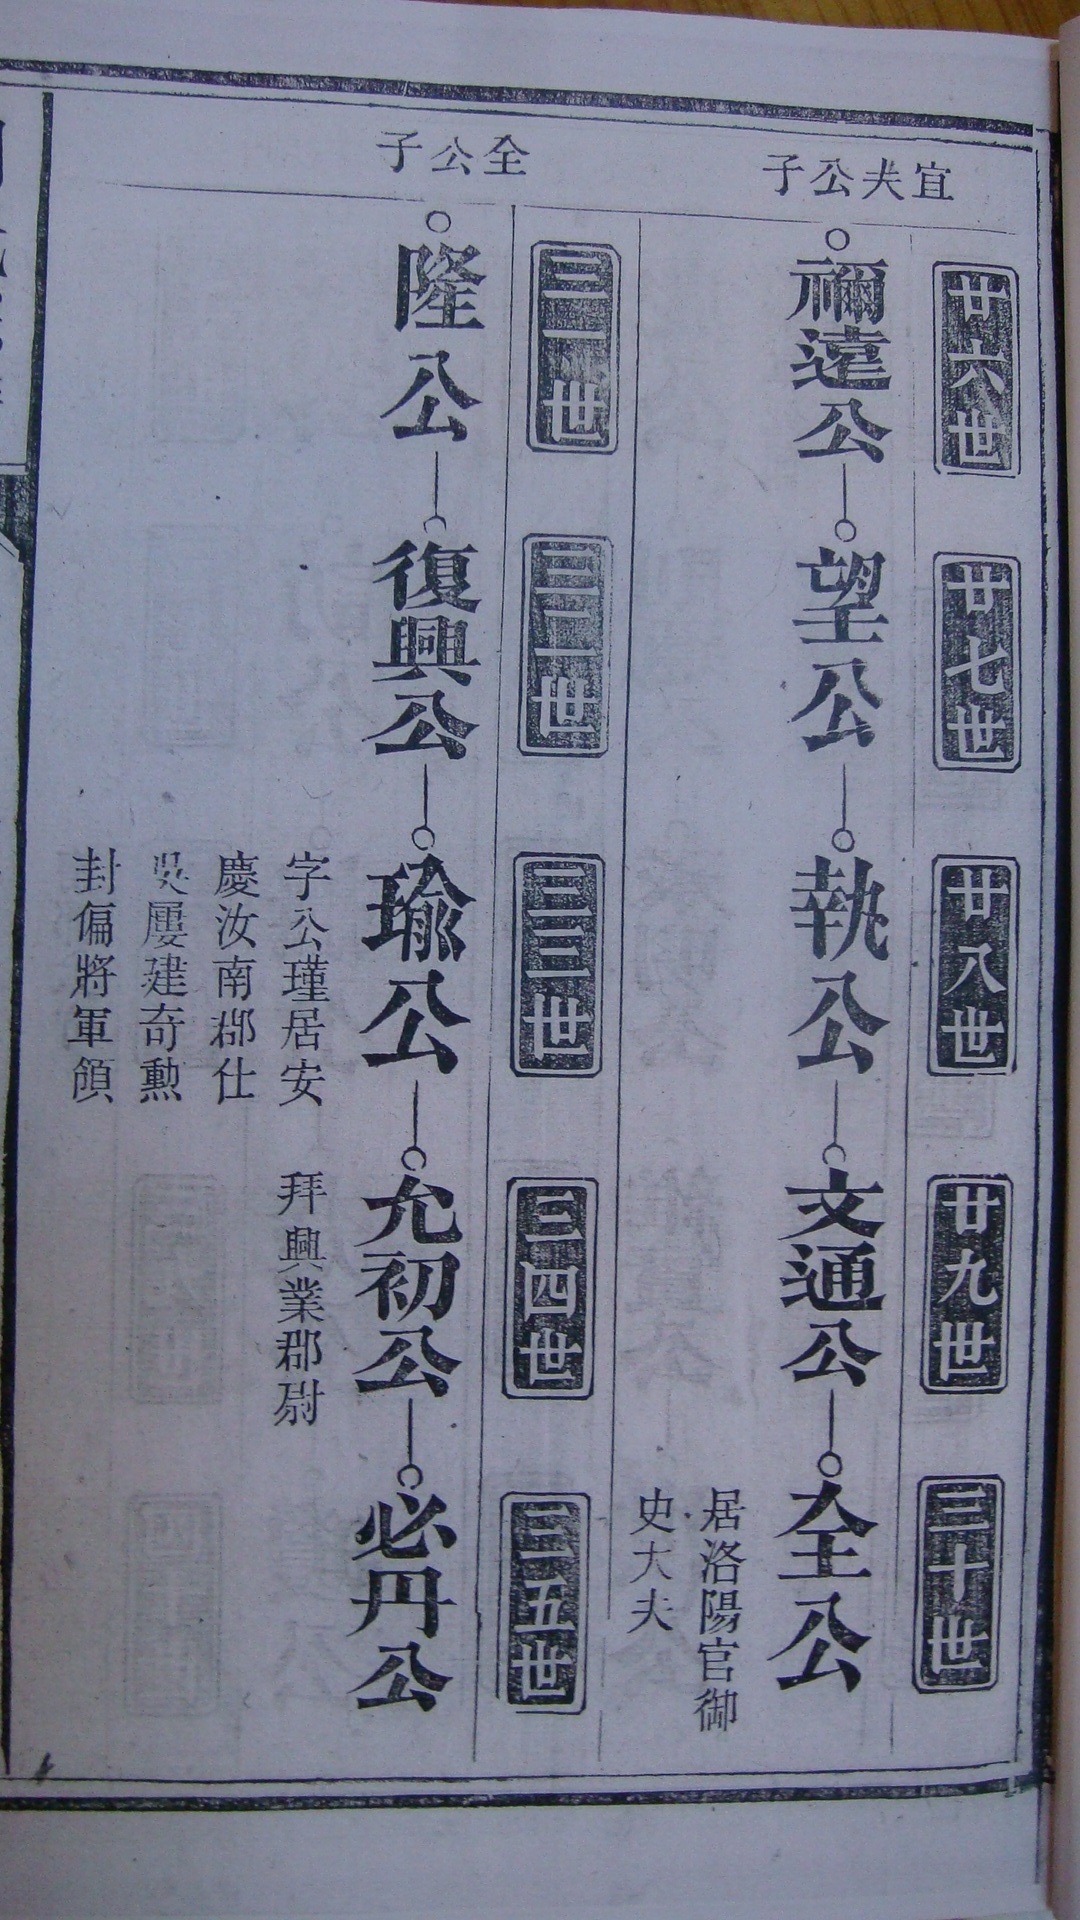 廿六世
廿七世
廿八世
廿九世
三十世
宜夫公子
禰遠公
望公
執公
文通公
全公
居洛陽官御
史大夫
三一世
三二世
三三世
三四世
三五世
全公子
隆公
復興公
瑜公
允初公
必丹公
字公瑾居安
慶汝南郡仕
吳屢建奇勲
封偏將軍領
拜興業郡尉